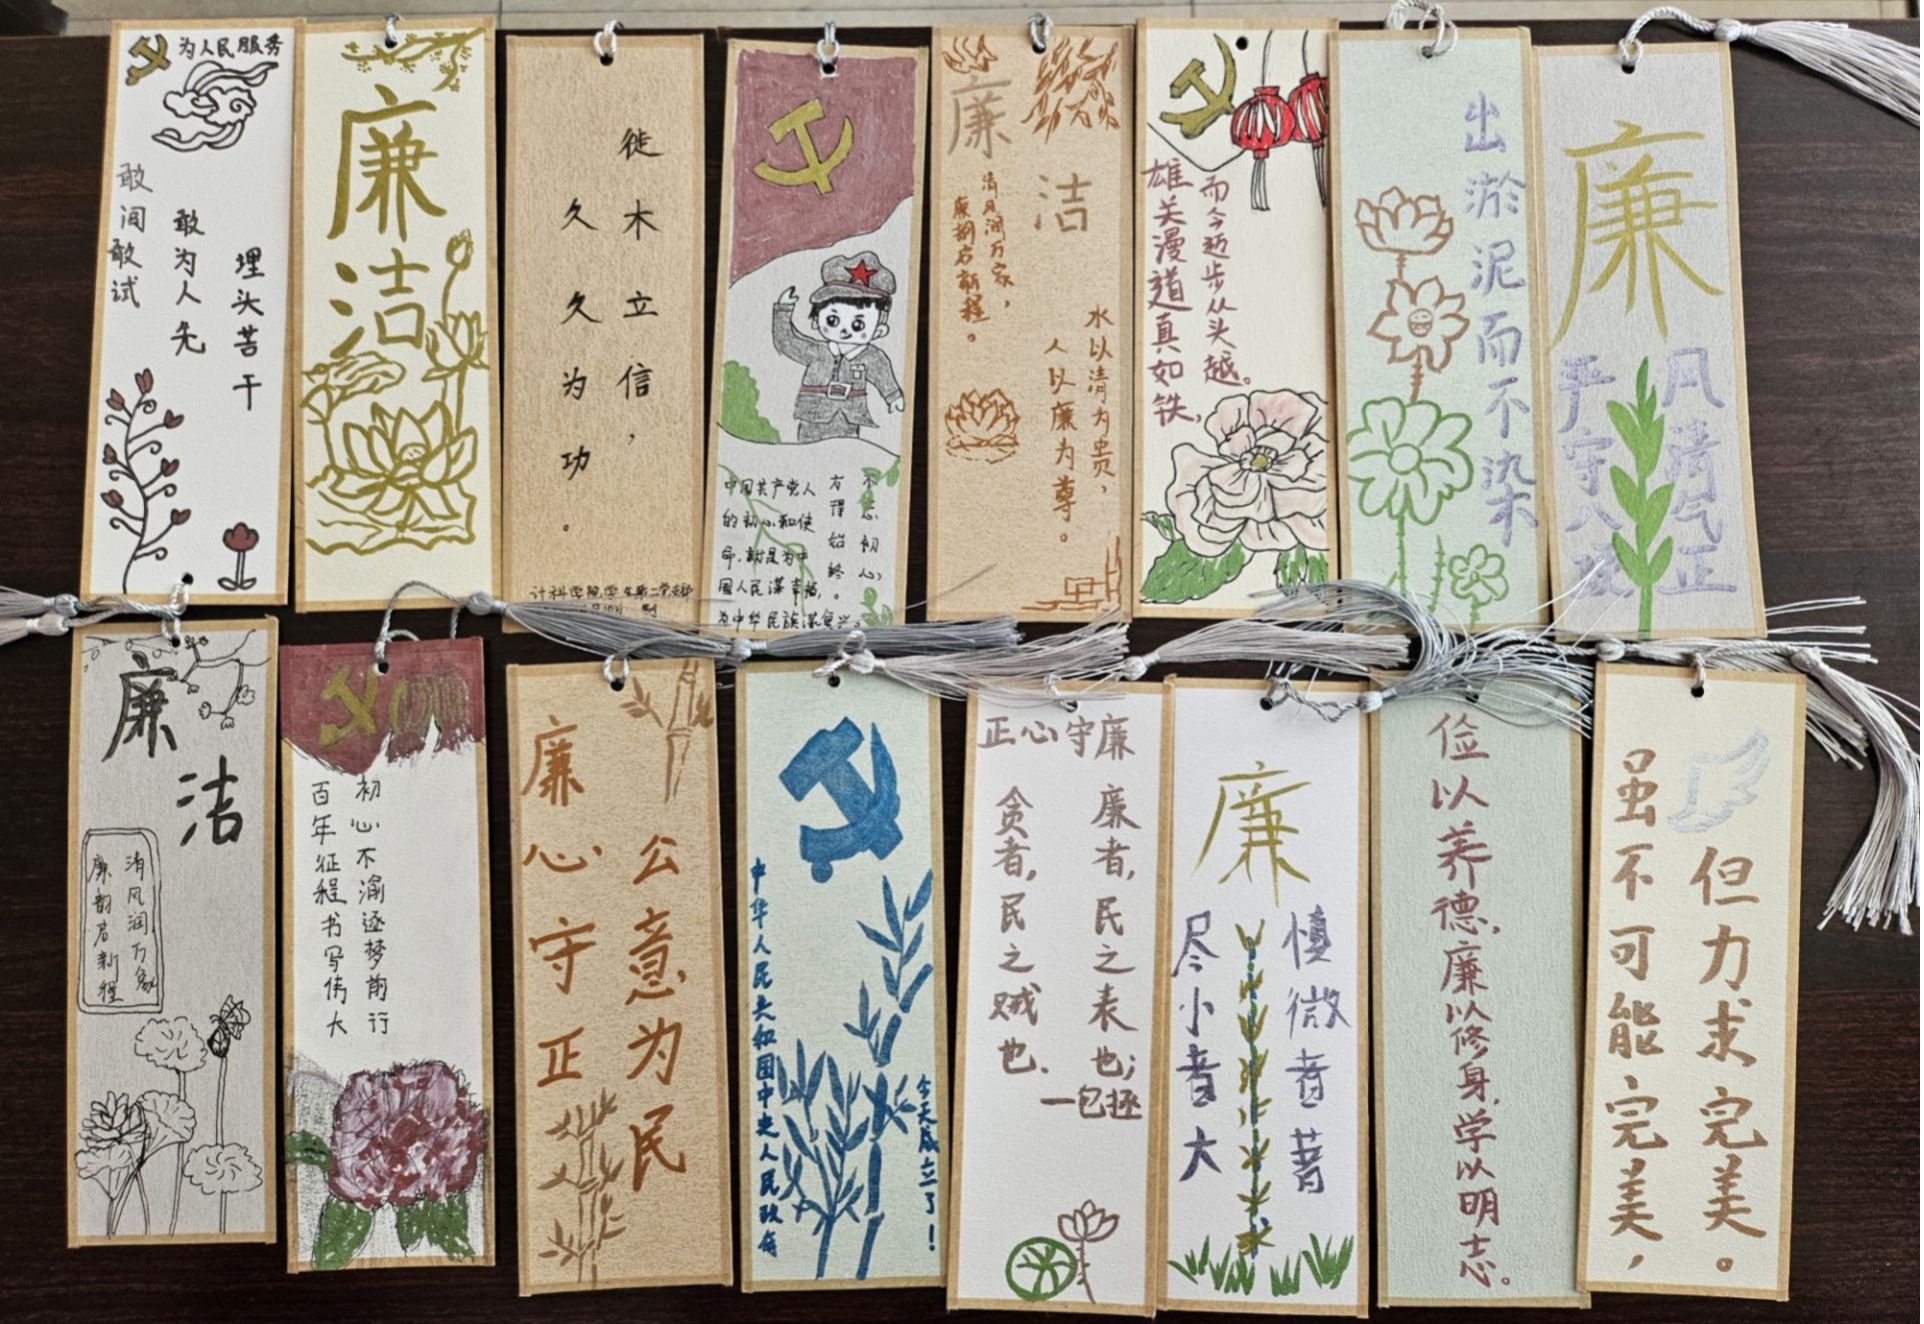 为人民服务
敢闯敢试
敢为人先
埋头苦干
廉洁
徙木立信，
久久为功。
计科学院学生第二党支部
制
不忘初心，
方得始终。
中国共产党人
的初心和使
命，就是为中
国人民谋幸福，
为中华民族谋复兴。
廉洁
清风润万家，
廉韵启新程。
水以清为贵，
人以廉为尊。
雄关漫道真如铁，
而今迈步从头越。
出淤泥而不染
廉
风清气正
严守八项
廉洁
清风润万家
廉韵启新程
初心不渝逐梦前行
百年征程书写伟大
廉心守正
公意为民
中华人民共和国中央人民政府
今天成立了！
正心守廉
廉者，民之表也；
贪者，民之贼也.
一包拯
廉
慎微者著
尽小者大
俭以养德，廉以修身，学以明志。
虽不可能完美，
但力求完美。